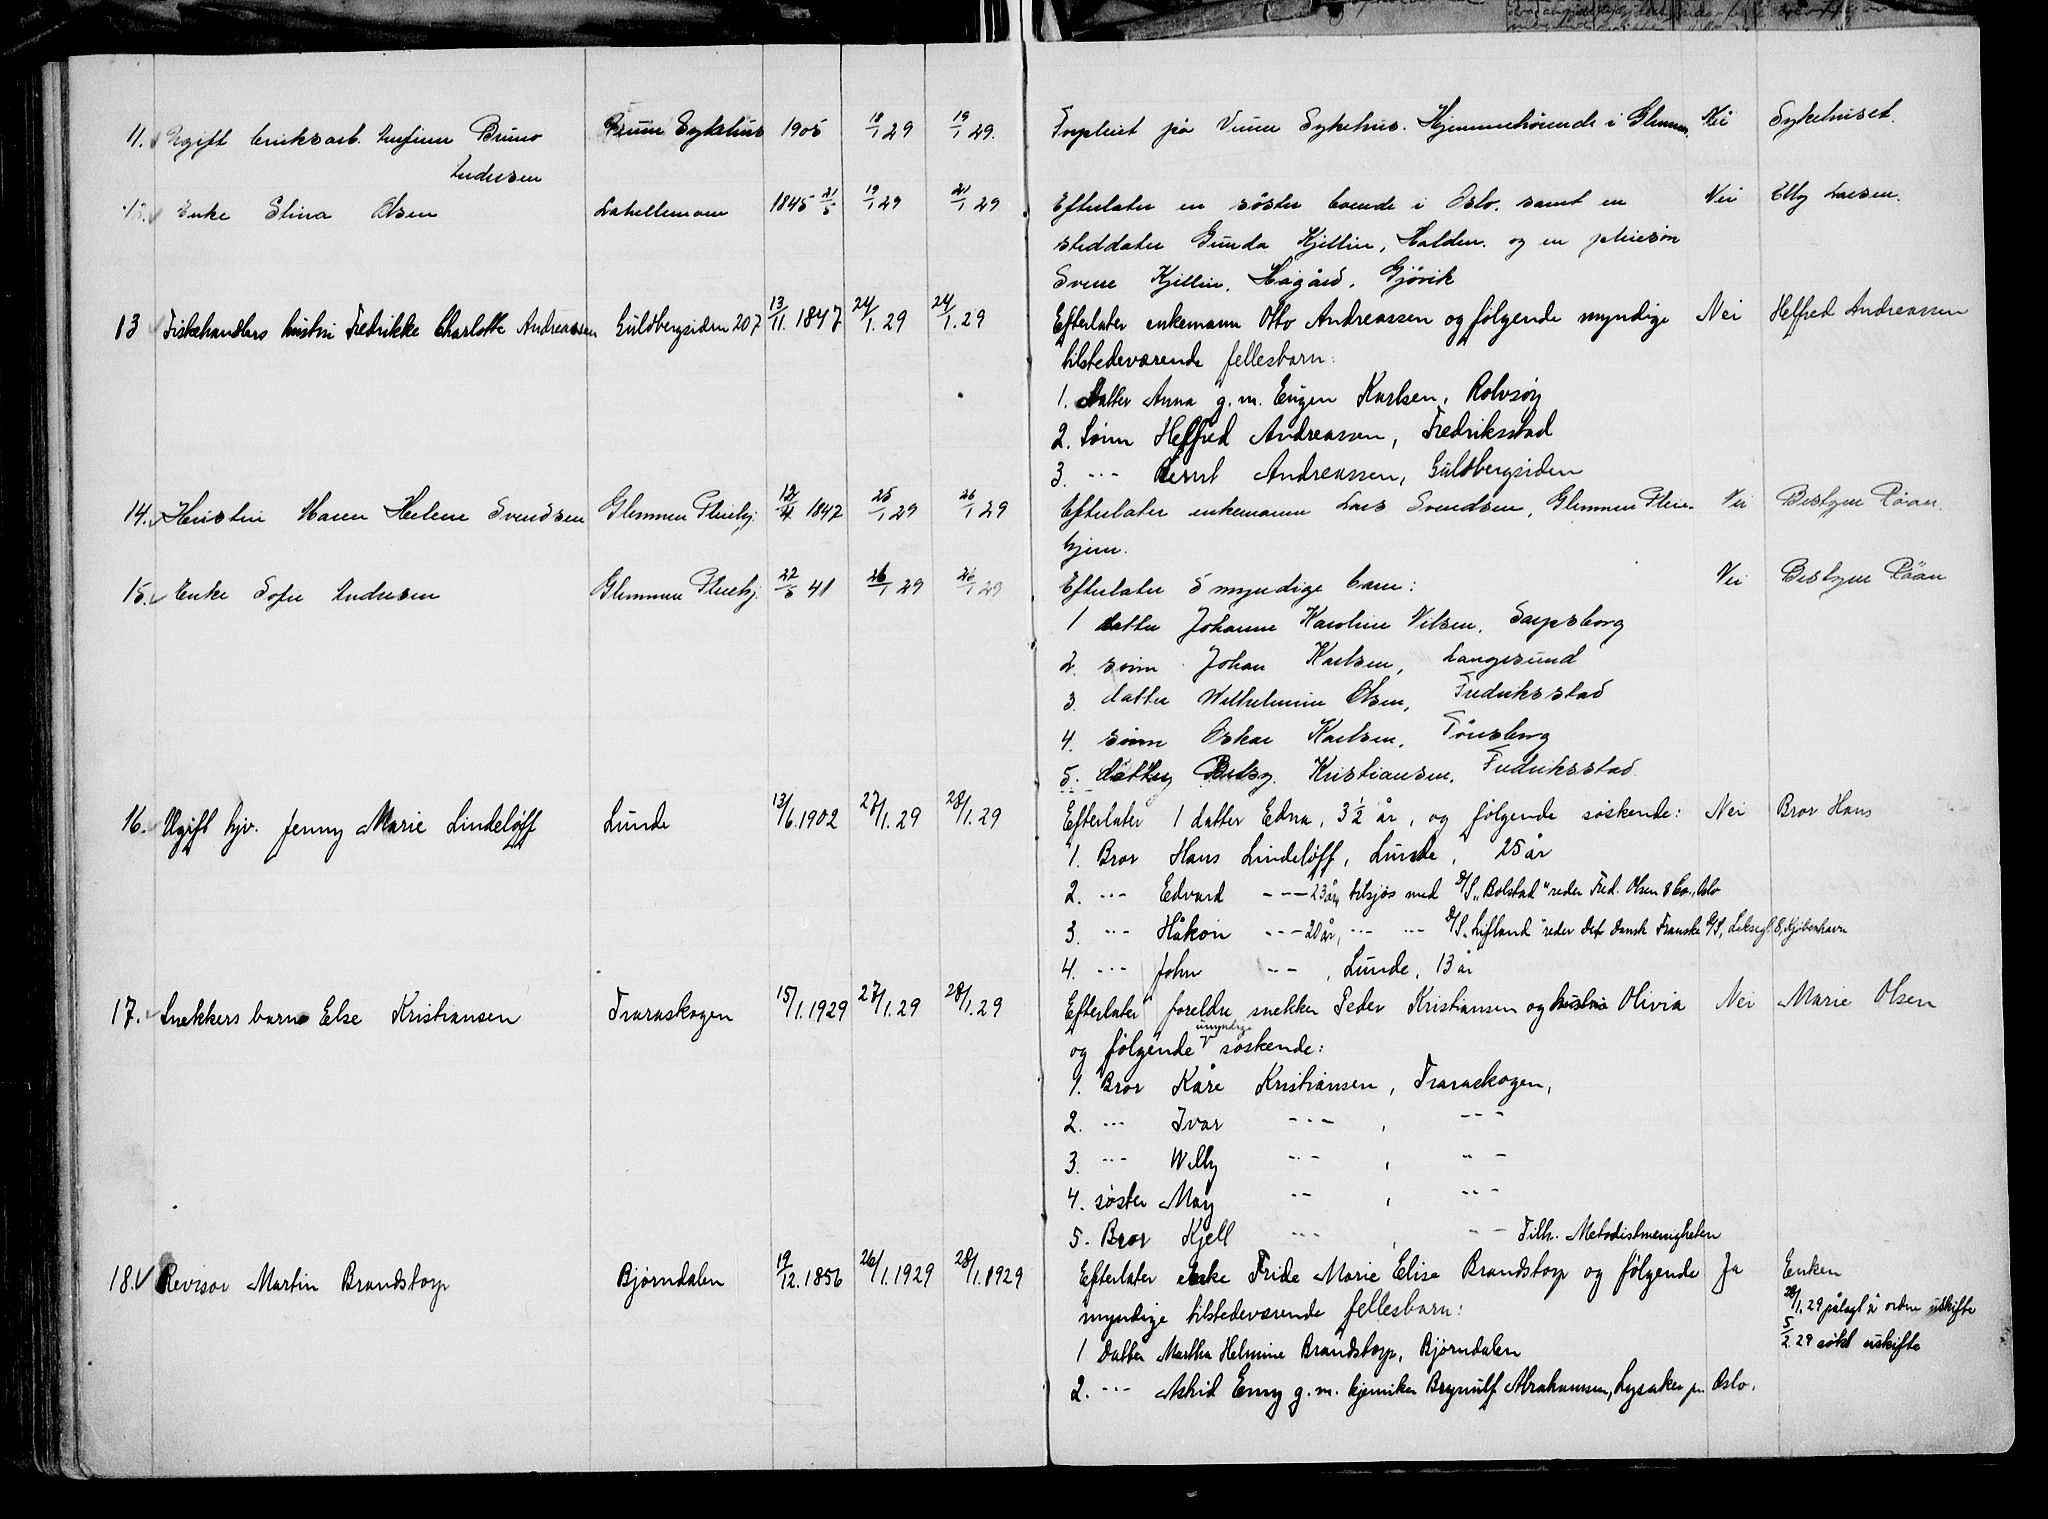 11. Ugift bruksarb. Bruno Veum Sykehus 1905 18/1 29 19/1 29. Forpleiet på Veum Sykehus. Hjemmehörende i Glemmen. Nei Sykehuset.
Andersen
12. Enke Stina Olsen Lahellemoen 1845 21/5 19/1 29 21/1 29 Efterlater en söster boende i Oslo. samt en Nei Elly Larsen.
steddater Gunda Kjellin, Halden. og en pleiesön
Svene Kjellin, Hågård, Gjövik
13 Fiskehandlers hustru Fredrikke Charlotte Andreassen Guldbergsiden 207 13/11. 1847 24/1. 29 24/1. 29 Efterlater enkemann Otto Andreassen og følgende myndige Nei Helfred Andreassen
tilstedeværende fellesbarn:
1. Datter Anna g.m. Eugen Karlsen, Rolvsøy
2. Sønn Helfred Andreassen, Fredriksstad
3. --- Bernt Andreassen, Guldbergsiden
14. Hustru Maren Helene Svendsen Glemmen Pleiehj. 12/4 1847 25/1 29 26/1 29 Efterlater enkemann Lars Svendsen, Glemmen Pleie- Nei Bestyrer Röan.
hjem.
15. Enke Sofie Andersen Glemmen Pleiehj. 22/5 41 26/1 29 26/1 29 Efterlater 5 myndige barn: Nei Bestyrer Röan
1 datter Johanne Karoline Nilsen, Sarpsborg
2 sönn Johan Karlsen, Langesund
3. datter Wilhelmine Olsen, Fredriksstad
4. sönn Oskar Karlsen, Tönsberg
5. datter Betsy Kristiansen, Fredriksstad.
16. Ugift hjv. Jenny Marie Lindeløff Lunde 13/6. 1902 27/1. 29 28/1. 29 Efterlater 1 datter Edna, 3 1/2 år, og følgende søskende: Nei Bror Hans
1. Bror Hans Lindeløff, Lunde, 25 år
2. --- Edvard --- 23 år, tilsjøs med D/S „Bolstad" reder Fred. Olsen & Co., Oslo
3. --- Håkon --- 20 år, --- --- D/S „Lifland" reder Det Dansk Franske D/S, 8, Kjøbenhavn
4. --- John --- , Lunde, 13 år
17. Snekkers barn Else Kristiansen Traraskogen 15/1. 1929 27/1. 29 28/1. 29 Efterlater foreldre snekker Peder Kristiansen og hustru Olivia Nei Marie Olsen
og følgende umyndige søskende:
1. Bror Kåre Kristiansen, Traraskogen,
2. --- Ivar --- , ---
3. --- Willy --- , ---
4. søster May --- , ---
5. Bror Kjell --- , -- Tilh. Metodistmenigheten
18. Revisor Martin Brandstorp Bjørndalen 19/12. 1856 26/1. 1929 28/1. 1929 Efterlater enke Fride Marie Elise Brandstorp og følgende Ja Enken
myndige tilstedeværende fellesbarn: 28/1. 29 pålagt å ordne uskifte
1 Datter Martha Helmine Brandstorp, Bjørndalen 5/2 29 søkt uskifte
2. --- Astrid Emy g.m. kjemiker Brynulf Abrahamsen, Lysaker pr. Oslo.